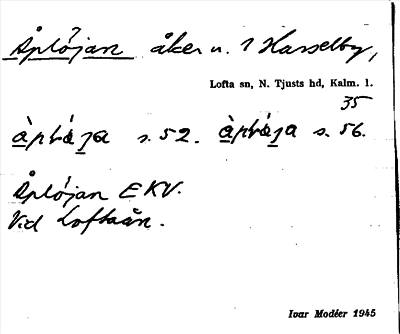 Åplöjan åker u. 1 Hasselby,
Lofta sn, N. Tjusts hd, Kalm. l.
35
s. 52. s. 56.
Åplöjan EKV.
Vid Loftaån.
Ivar Modéer 1945